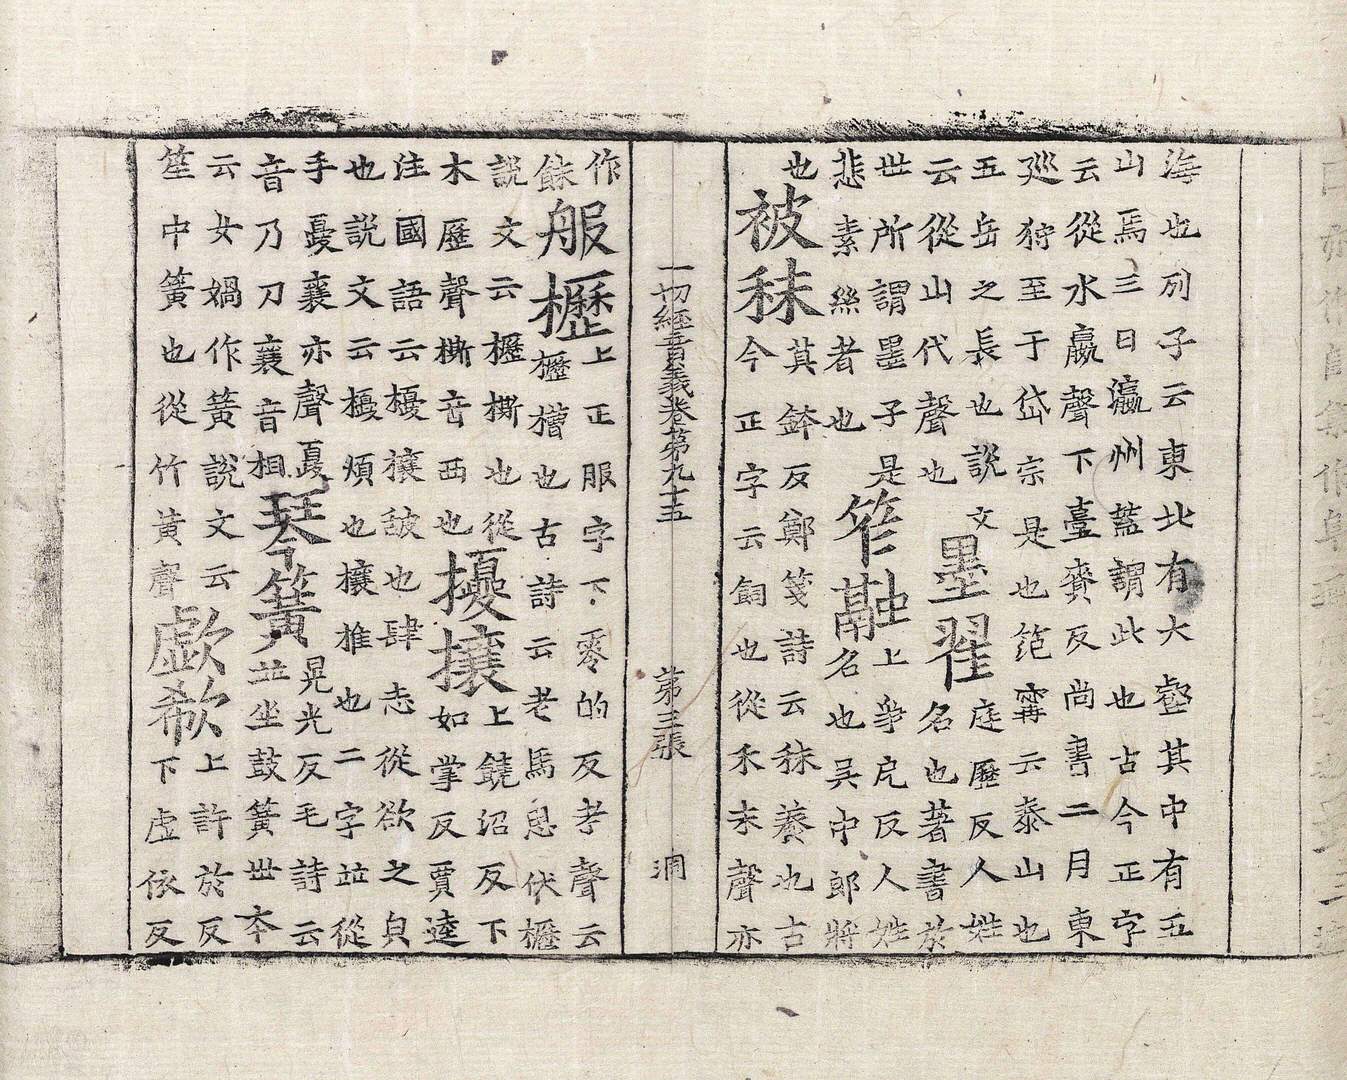 海也列子云東北有大壑其中有五
山焉三曰瀛州蓋謂此也古今正字
云從水嬴聲下臺賚反尚書二月東
巡狩至于岱宗是也範甯云泰山也
五岳之長也說文
云從山代聲也
墨翟
庭歷反人姓
名也著書於
世所謂墨子是
悲素絲者也
笮融
上爭戹反人姓
名也吳中郎將
也
被秣
莫鉢反鄭箋詩云秣養也古
今正字云飼也從禾末聲亦
一切經音義卷第九十五 第三張 洞
作
餗
般櫪
上正服字下零的反考聲云
櫪槽也古詩云老馬息伏櫪
說文云櫪撕也從
木歷聲撕音西也
擾攘
上饒沼反下
如掌反賈逵
注國語云擾攘皷也肆志從欲之皃
也說文云擾煩也攘推也二字並從
手憂襄亦聲憂
音乃刀襄音相
琴簧
晃光反毛詩云
並坐鼓簧世本
云女媧作簧說文云
笙中簧也從竹黃聲
歔欷
上許於反
下虛依反